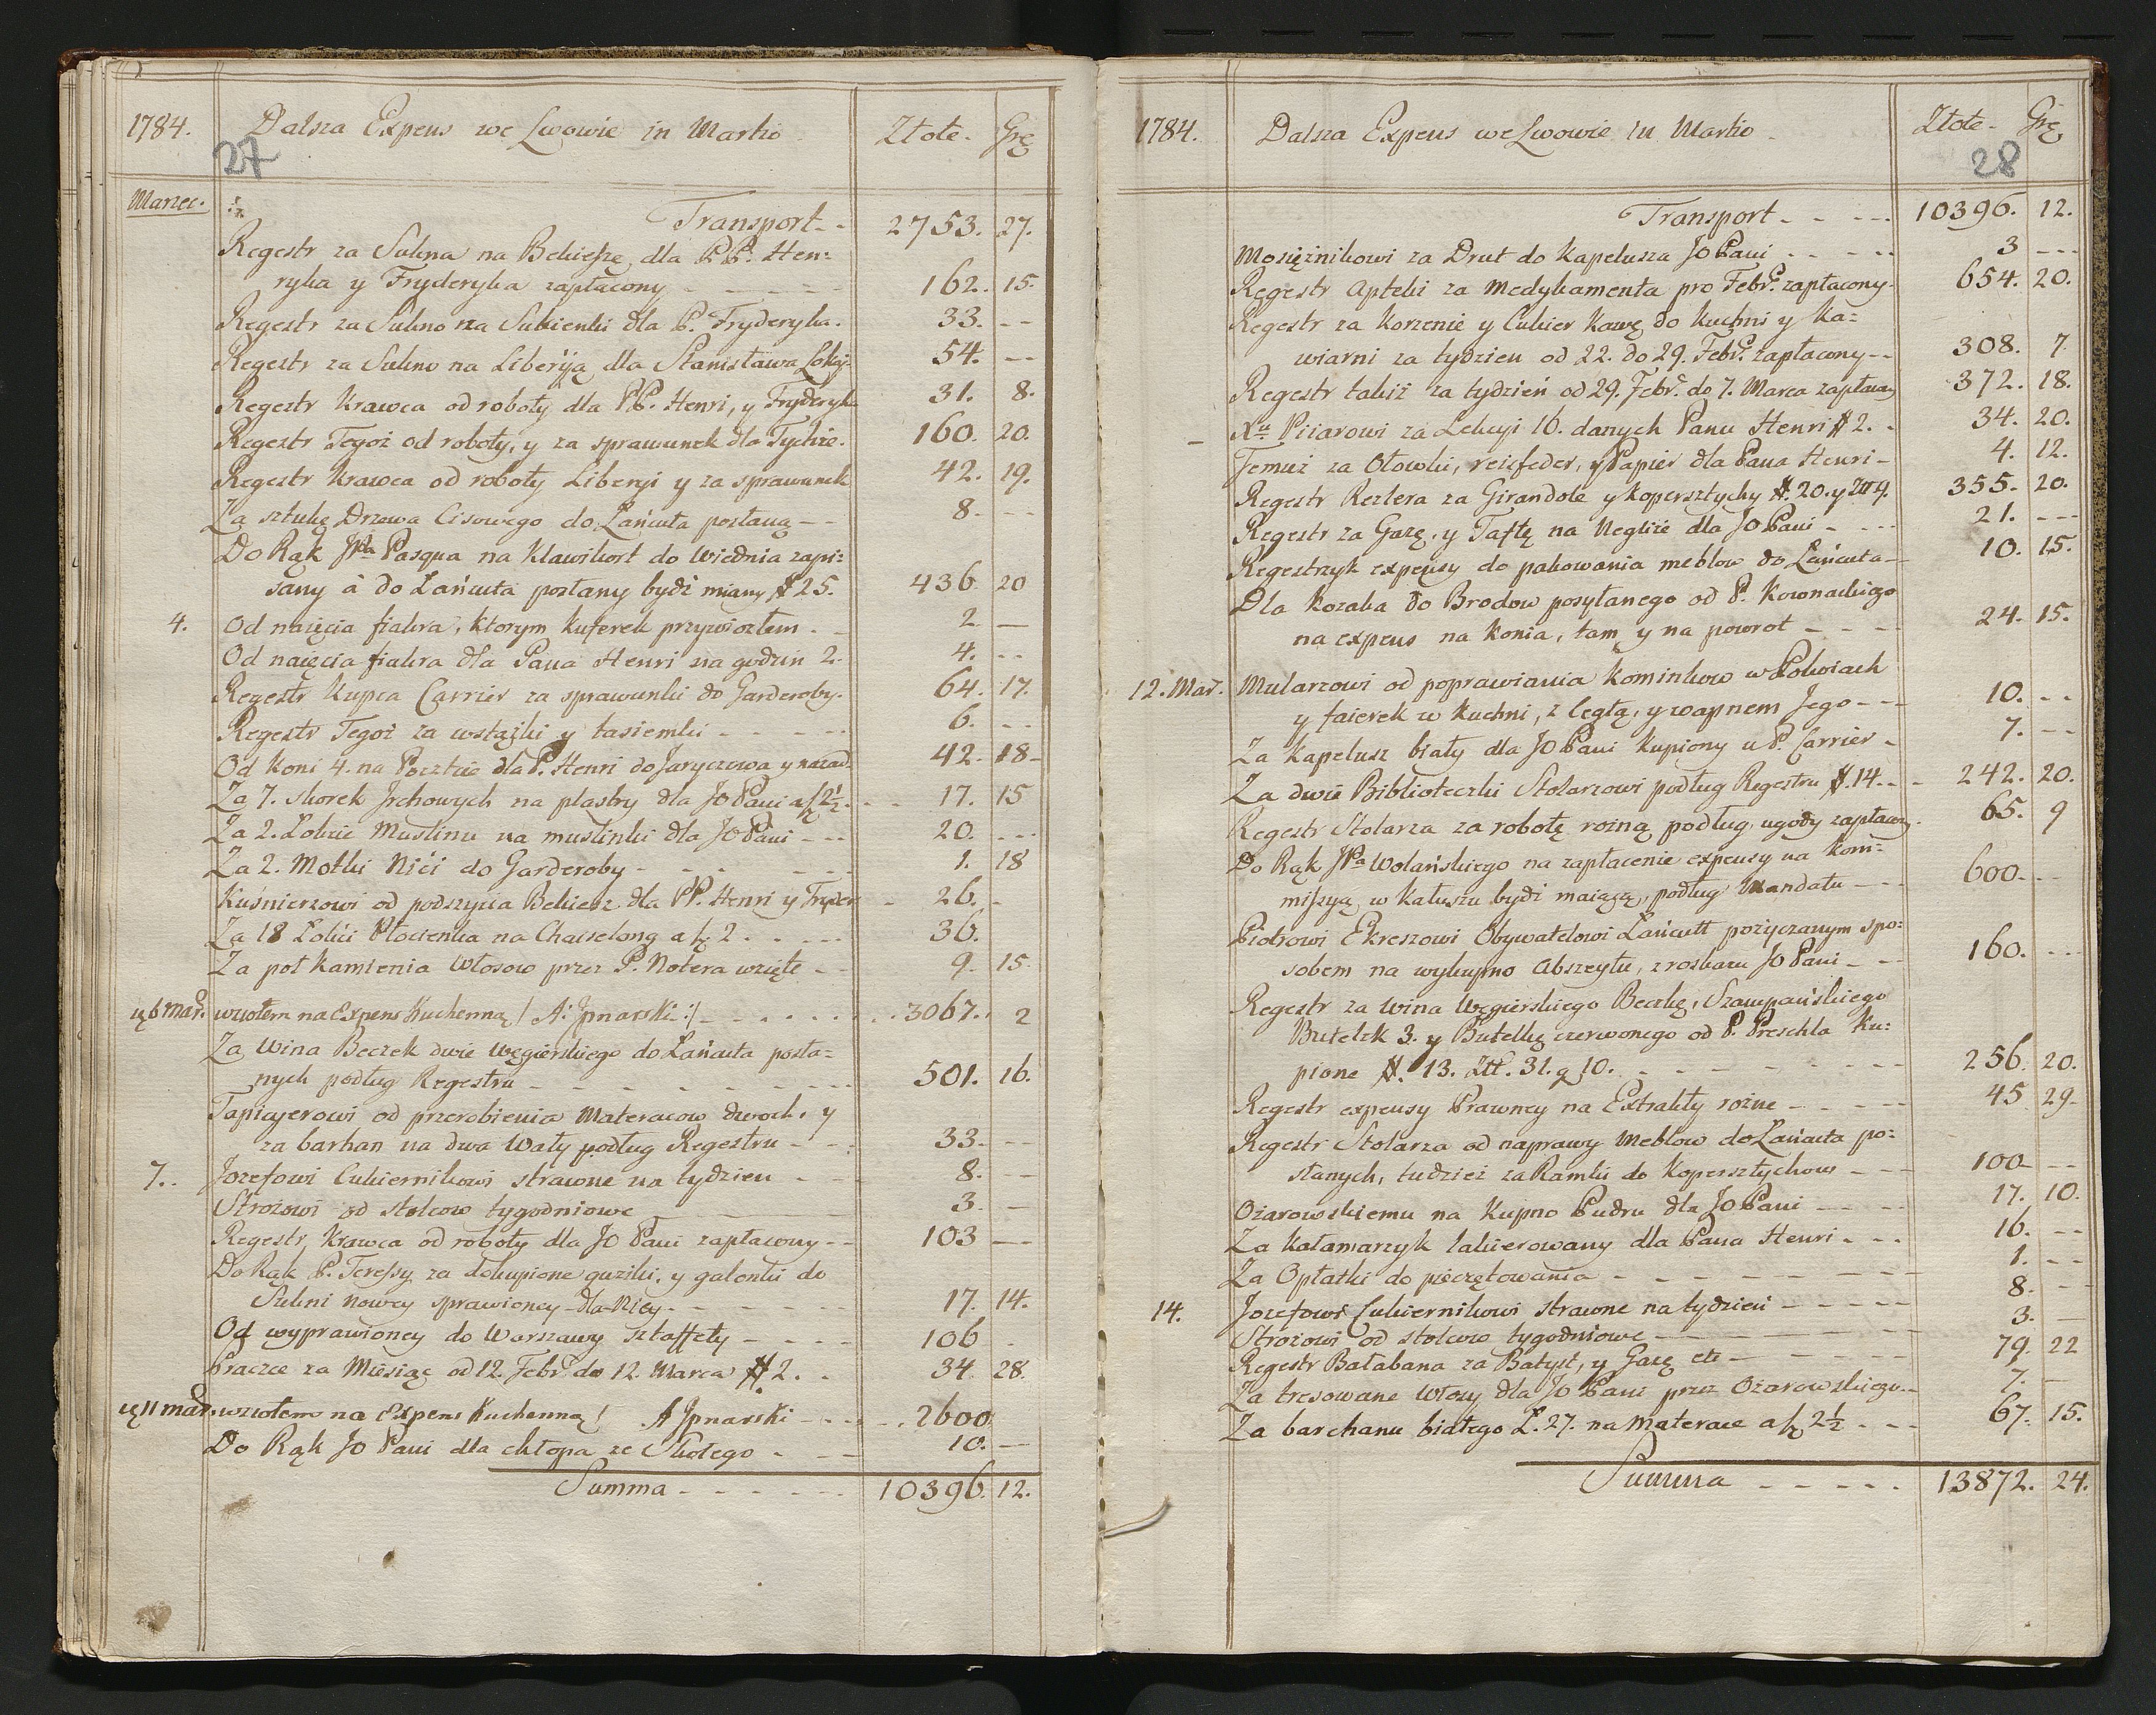 1784. Dalsza Expens we Lwowie in Martio Złote. Grę
27
Marzec.
Transport - - 2753. 27.
Regestr za Sukna na Bekiesze dla PP. Hen=
ryka y Fryderyka zapłacony - - - - - 162. 15.
Regestr za Sukno na Sukienki dla P. Fryderyka. 33. - -
Regestr za Sukno na Liberyją dla Stanisława Lokaj. 54. - -
Regestr Krawca od roboty dla PP. Henri, y Fryderyk 31. 8.
Regestr Tegoż od roboty, y za sprawunek dla Tychże. 160. 20.
Regestr Krawca od roboty Liberyi y za sprawunek 42. 19.
Za sztukę Drzewa Cisowego do Łańcuta posłaną - - 8. - -
Do Rąk JPa Pasqua na Klawikort do Wiednia zapi=
sany à do Łańcuta posłany bydź miany # 25. 436. 20
4. Od naięcia fiakra, ktorym kuferek przywiozłem. - 2. —
Od naięcia fiakra dla Pana Henri na godzin 2. 4. - -
Regestr Kupca Carrier za sprawunki do Garderoby. 64. 17.
Regestr Tegoż za wstążki y tasiemki - - - - - 6. - -
Od Koni 4. na Pocztcie dla P. Henri do Jaryczowa y nazad. 42. 18-
Za 7. skorek Jrchowych na plastry dla JO Pani a f 2½. - - 17. 15
Za 2. Łokcie Muslinu na muslinki dla JO Pani - - - 20. - - -
Za 2. Motki Nici do Garderoby - - - - 1. 18
Kuśnierzowi od podszycia Bekiesz dla PP. Henri y Fryder - 26. -
Za 18 Łokci Płocienka na Chaiselong a f 2. - - - - 36.
Za poł Kamienia Włosow przez P. Notera wzięte - - 9. 15.
6 Mar. wziołem na Expens Kuchenną - - - - - - 3067. 2
Za Wina Beczek dwie Węgierskiego do Łańcuta posła=
nych podług Regestru - - - - - - - - 501. 16.
Tapicyerowi od przerobienia Materacow dwoch, y
za barhan na dwa Wały podług Regestru - - - 33. - -
7. Jozefowi Cukiernikowi strawne na tydzien - - - 8. - -
Strożowi od stolcow tygodniowe — — — — 3. —
Regestr Krawca od roboty dla JO Pani zapłacony - - 103 — -
Do Rąk P. Teressy za dokupione guziki, y galonki do
Sukni nowey sprawioney dla Niey - - - - - - 17. 14.
Od wyprawioney do Warszawy sztaffety - - - - 106 -
Praczce za Miesiąc od 12. Febr. do 12. Marca # 2. - 34. 28.
11 Mar. wziołem na Expens Kuchenną - - - - - 2600
Do Rąk JO Pani dla chłopa ze - - - 10. —
Summa - - - - - - 10396. 12.
1784. Dalsza Expens we Lwowie in Martio Złote - Grę
28
Transport - - - - - 10396. 12.
Mosiężnikowi za Drut do Kapelusza JO Pani - - - - - 3 - - -
Regestr Apteki za Medykamenta pro Febr. zapłacony. 654. 20.
Regestr za Korzenie y Cukier Kawę do Kuchni y Ka=
wiarni za tydzien od 22. do 29. Febr. zapłacony - - 308. 7
Regestr takiż za tydzień od 29. Febr. do 7. Marca zapłacony 372. 18.
Xu Piiarowi za Lekcyi 16. danych Panu Henri # 2. - 34. 20.
Temuż za Ołowki, reisfeder, y Papier dla Pana Henri - 4. 12.
Regestr Rezlera za Girandole y kopersztychy #. 20. y Złł 9. 355. 20.
Regestr za Gazę, y Taftę na Negliże dla JO Pani - - - - 21. - - -
Regestrzyk expensy do pakowania meblow do Łańcuta - - 10. 15.
Dla Kozaka do Brodow posyłanego od P. Kownackiego
na expens na Konia, tam y na powrot - - - - 24. 15.
12. Mar. Mularzowi od poprawiania Kominkow w Pokoiach
y faierek w Kuchni, z Cegłą, y wapnem Jego - - - 10. - -
Za Kapelusz biały dla JO Pani Kupiony u P. Carrier - 7. - -
Za dwie Biblioteczki Stolarzowi podług Regestru #. 14. - - 242. 20.
Regestr Stolarza za robotę rożną podług ugody zapłacony. 65. 9
Do Rąk JPa Wolańskiego na zapłacenie expensy na Kom=
missyą w Kałuszu bydź maiącą, podług Mandatu - - - 600. - -
Piotrowi Ekreszowi Obywatelowi Łańcutt pożyczanym spo=
sobem na wykupno Abszeytu, z roskazu JO Pani - - - 160. - - -
Regestr za Wina Węgierskiego Beczkę, Szampańskiego
Butelek 3. y Butelkę czerwonego od P. Preschla Ku=
pione #. 13. Złł. 31. g 10. - - - - - - - 256. 20.
Regestr expensy Prawney na Extrakty rożne - - - - - 45 29-
Regestr Stolarza od naprawy Meblow do Łańcuta po=
słanych, tudzież za Ramki do Kopersztychow - - - 100 - - -
Ożarowskiemu na Kupno Pudru dla JO Pani - - - - 17. 10.
Za Kałamarzyk lakierowany dla Pana Henri - - - 16. - -
Za Opłatki do pieczętowania - - - - - - - - 1. - -
14. Jozefowi Cukiernikowi strawne na tydzień - - - - - 8. - -
Strożowi od stolcow tygodniowe - - - - 3. —
Regestr Bałabana za Batyst, y Gazę etc - - - - 79. 22
Za tresowane Włosy dla JO Pani przez Ożarowskiego - - 7. —
Za barchanu białego Ł. 27. na Materace a f 2½ - - - 67. 15.
Summa - - - - - 13872. 24.